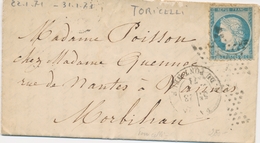 22.1.71 - 31.1.71 TORICELLI
Madame Poisson
chez Madame Guennec
rue de Nantes à Vannes
Morbihan